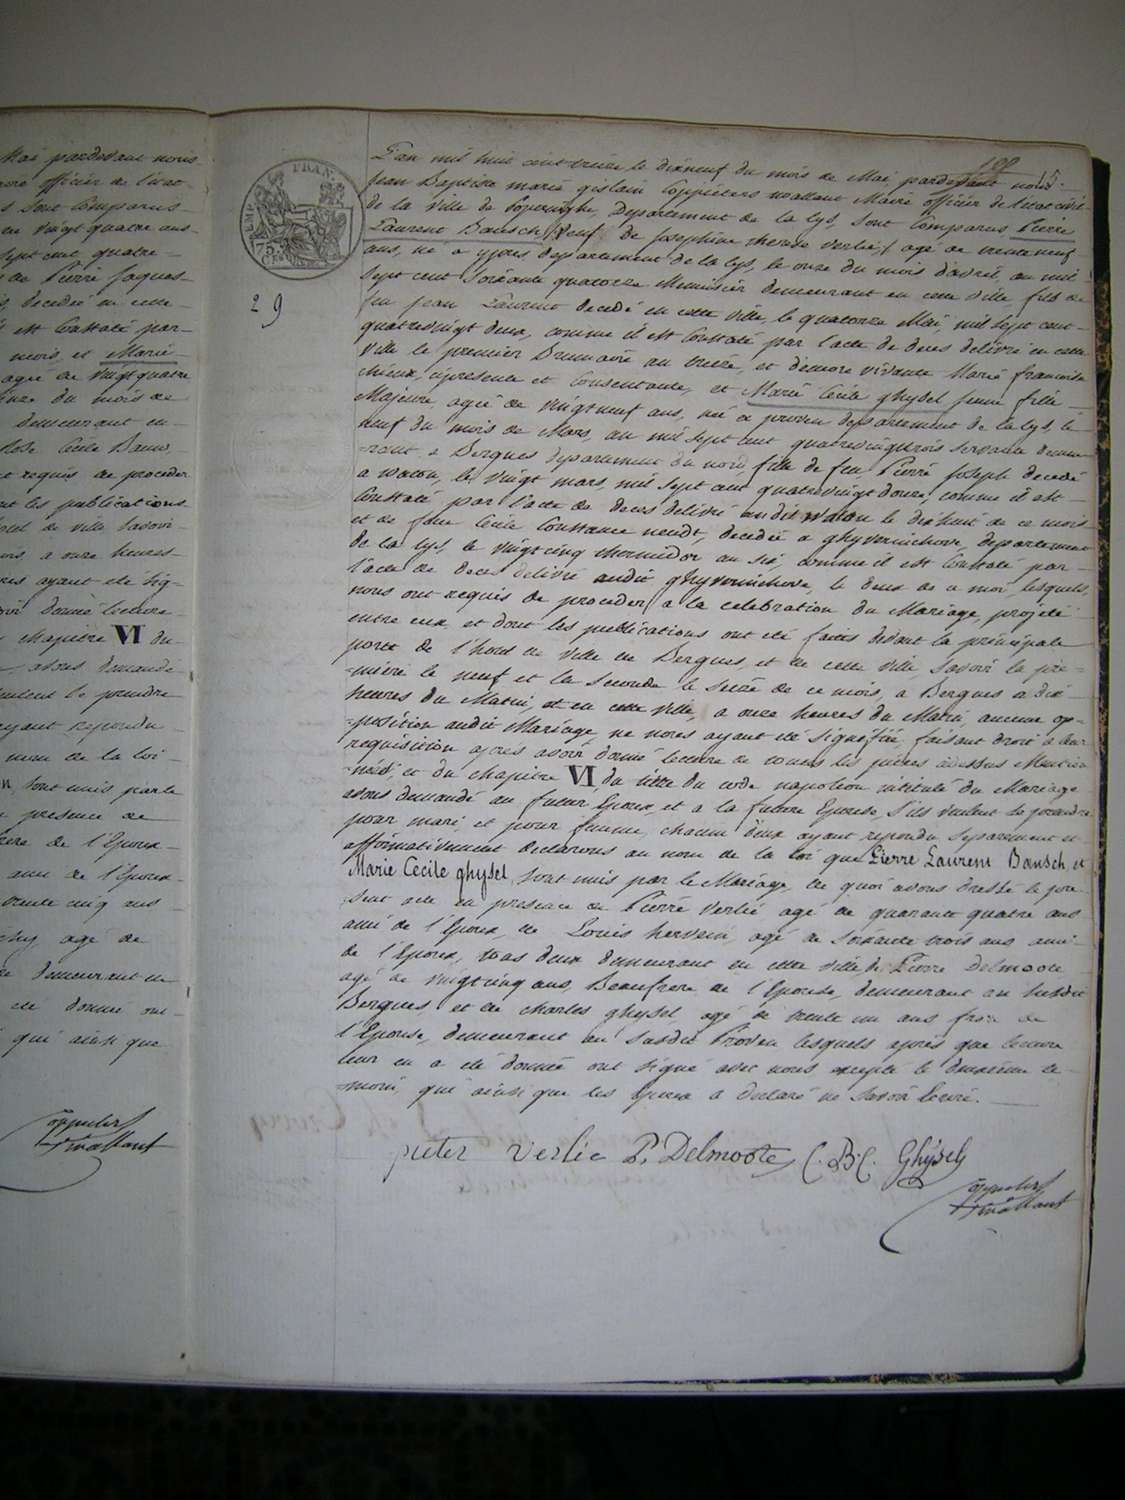 Mai pardevant nous
officier de l'état
sont Comparus
vingt quatre ans
sept cent quatre
de Pierre Jaques
decedé en cette
est Constaté par
mois, et Marie
agée de vingt quatre
du mois de
demeurant en
Rose Cecile Bauw
requis de proceder
les publications
hotel de ville Savoir
a onze heures
ayant été sig-
donné lecture
chapitre VI du
avons demandé
veulent se prendre
ayant repondu
nom de la loi
sont unis par le
presence de
frere de l'Epoux
ami de l'Epoux
trente cinq ans
agé de
demeurant en
été donnée ont
qui ainsi que
Coppieters
t'wallant
TIMP FRAN
75
CEN
29
15.
L'an mil huit cent treize, le dixneuf du mois de Mai pardevant nous
Jean Baptiste marie gislain Coppieters twallant Maire officier de l'état civil
de la Ville de Poperinghe, Departement de la Lys, Sont Comparus Pierre
Laurent Bausch (Veuf de Josephine therese Verlié,) agé de trenteneuf
ans, né a ypres departement de la Lys, le onze du mois d'avril, an mil
sept cent Soixante quatorze Menuisier demeurant en cette ville, fils de
feu Jean Laurent decedé en cette Ville, le quatorze Mai, mil sept cent
quatrevingt deux, comme il est Constaté par l'acte de deces delivré en cette
Ville le premier Brumaire an treize, et d'encore vivante Marie francoise
presente et Consentante, et Marie Cecile ghysel jeune fille
Majeure, agée de vingtneuf ans, née a proven departement de la Lys, le
neuf du mois de Mars, an mil sept cent quatrevingttrois servante demeu
rant a Bergues departement du nord, fille de feu Pierre Joseph decedé
a watou, le vingt mars, mil sept cent quatrevingt douze, comme il est
Constaté par l'acte de deces delivré audit watou le dixhuit de ce mois
et de feue Cecile Constance neudt, decedée a ghyverinchove, departement
de la Lys, le vingtcinq thermidor an six, comme il est Constaté par
l'acte de deces delivré audit ghyverinchove, le deux de ce moi, lesquels
nous ont requis de proceder a la celebration du Mariage, projeté
entre eux, et dont les publications ont été faites devant la principale
porte de l'hotel de Ville de Bergues, et de cette Ville, Savoir la pre-
-miere le neuf et la Seconde le Seize de ce mois, a Bergues a dix
heures du Matin, et en cette Ville, a onze heures du Matin, aucune op-
-position audit Mariage, ne nous ayant été signifiée, faisant droit a leur
requisition apres avoir donné lecture de toutes les pieces cidessus Mention
-nées, et du chapitre VI, du titre du code napoleon intitulé du Mariage
avons demandé au futur Epoux, et a la future Epouse, s'ils veulent se prendre
pour mari, et pour femme, chacun d'eux ayant repondu Separement et
affirmativement declarons au nom de la loi que Pierre Laurent Bausch et
Marie Cecile ghysel, Sont unis par le Mariage, de quoi avons dressé le pre
sent acte en presence de Pierre Verlié agé de quarante quatre ans
ami de l'Epoux, de Louis hervein, agé de Soixante trois ans ami
de l'Epoux, tous deux demeurant en cette ville de Pierre Delmoote
agé de vingtcinq ans, Beaufrere de l'Epouse, demeurant au susdit
Bergues et de charles ghysel, agé de trente un ans frere de
l'Epouse, demeurant au susdit Proven lesquels apres que lecture
leur en a été donnée ont Signé avec nous excepté le deuxieme te-
-moin, qui ainsi que les Epoux a declaré ne Savoir Ecrire.
pieter Verlie P. Delmoote C. B. C. Ghyselz
Coppieters
t'wallant